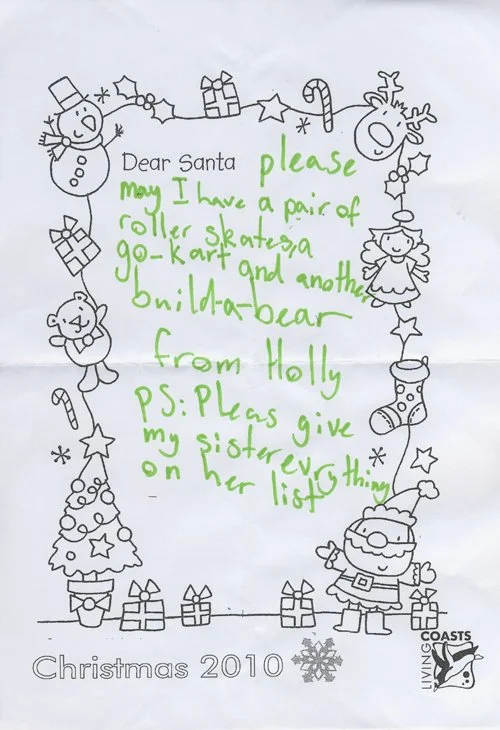 Dear Santa please
may I have a pair of
roller skates, a
go-kart and another
build-a-bear
from Holly
PS: Pleas give
my sister evrything
on her list
Christmas 2010
LIVING COASTS